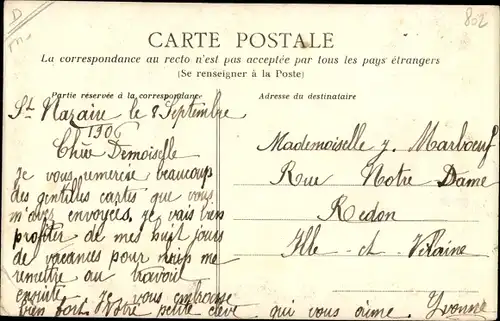 D
m
802
CARTE POSTALE
La correspondance au recto n'est pas acceptée par tous les pays étrangers
(Se renseigner à la Poste)
Partie réservée à la correspondance
Adresse du destinataire
St Nazaire le 8 Septembre
1906
Chère Demoiselle
je vous remercie beaucoup
des gentilles cartes que vous
m'avez envoyées, je vais bien
profiter de mes huit jours
de vacances pour me
remettre au travail
ensuite je vous embrasse
bien fort. Votre petite élève qui vous aime. Yvonne
Mademoiselle y. Marboeuf
Rue Notre Dame
Redon
Ille-et-Vilaine